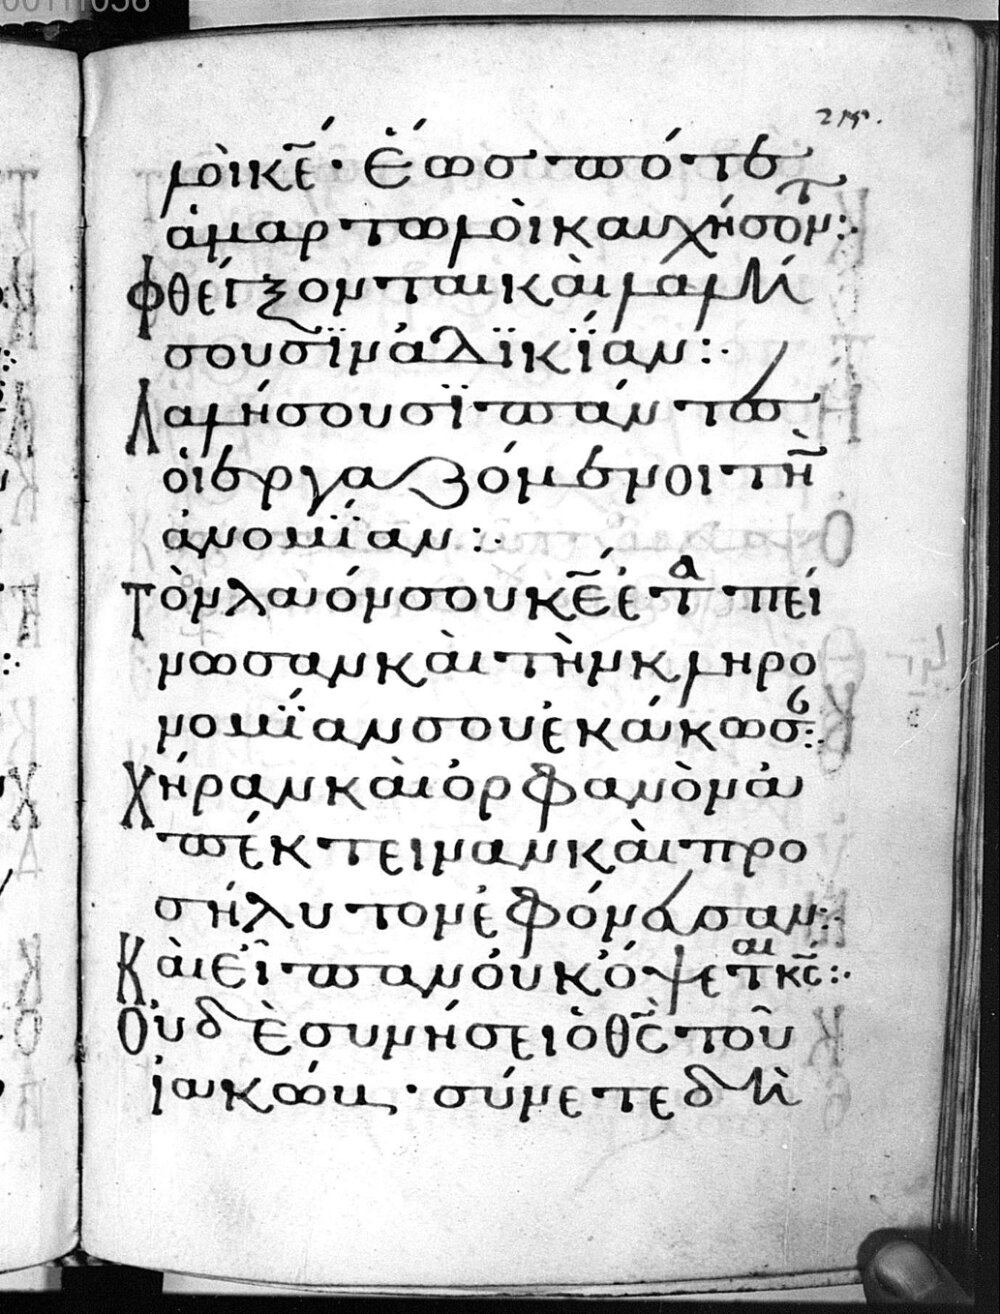 μοὶ κ̅ε̅· ἕωσ πότε
ἁμαρτωλοὶ καυχήσοντ:·
φθέγξονται καὶ λαλή
σουσϊν ἀδικΐαν:·
Λαλήσουσϊ πάντεσ
οἱ ἐργαζόμενοι τὴν
ἀνομΐαν:·
τὸν λαόν σου κ̅ε̅ ἐταπεί
νωσαν καὶ τὴν κληρο
νομΐαν σου ἐκάκωσαν:·
χήραν καὶ ὀρφανὸν ἀ
πέκτειναν καὶ προ
σήλυτον ἐφόνευσαν:·
Καὶ εἶπαν οὐκ ὄψεται κ̅ς̅:·
Οὐδὲ συνήσει ὁ θ̅ς̅ τοῦ
ἰακώβ· σύνετε δὴ